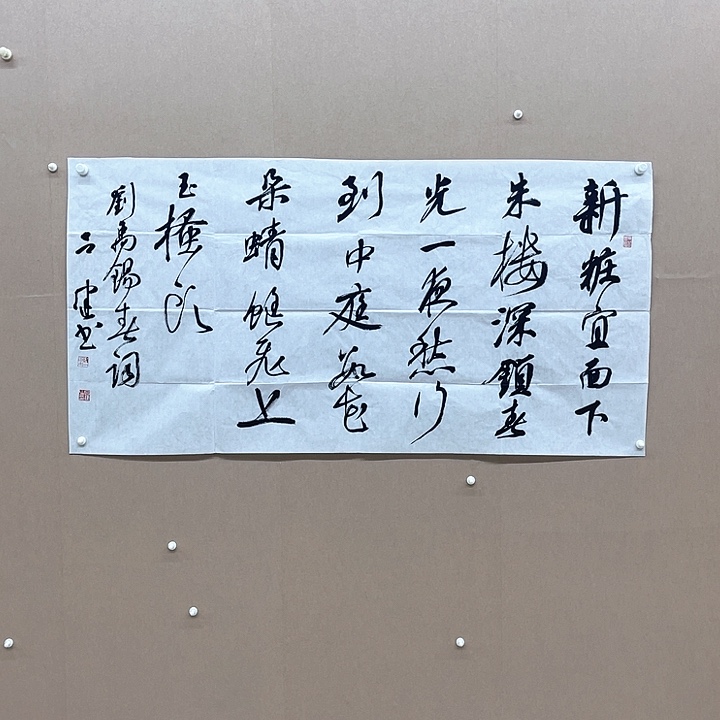 新粧宜面下
朱楼深鎖春
光一夜愁行
到中庭数花
朵蜻蜓飛上
玉搔頭
劉禹錫春詞
建书